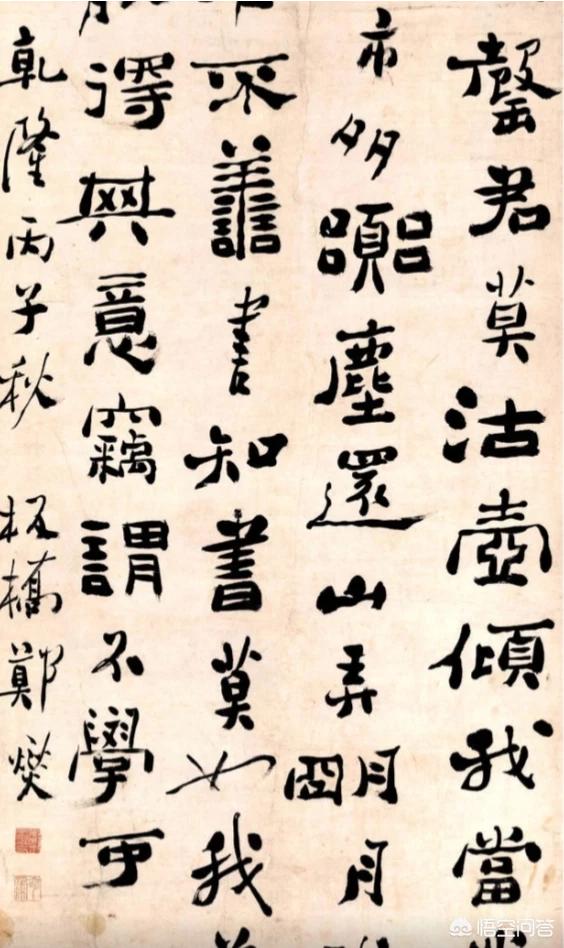 罄君莫沽壺傾我當
市多囂塵還山弄明月
不善書知書莫如我
得其意竊謂不學可
乾隆丙子秋 板橋鄭燮
悟空问答